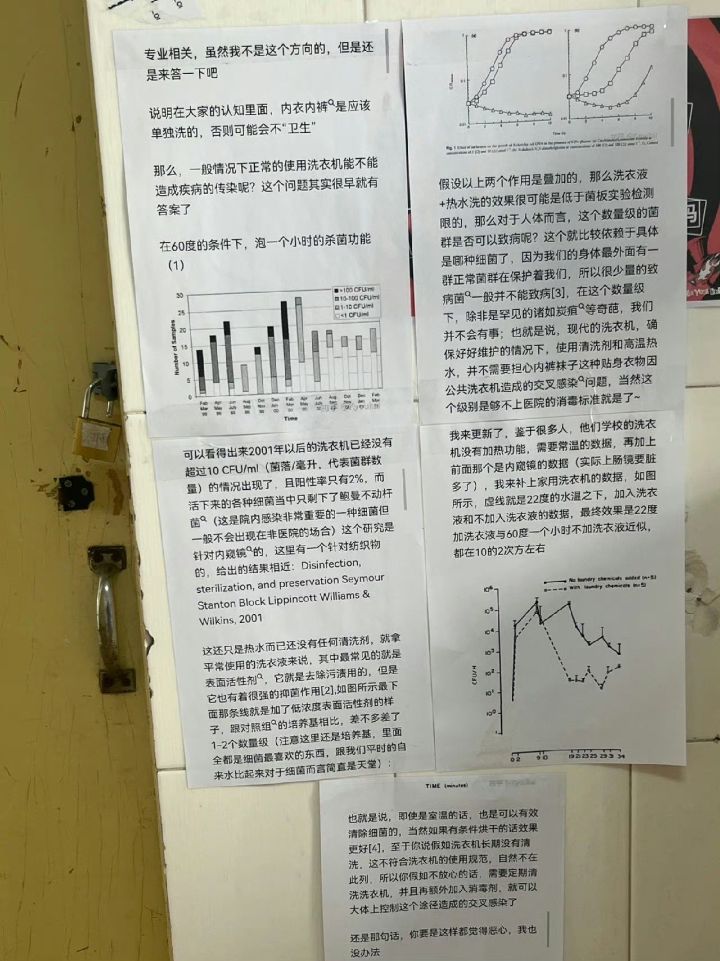 专业相关，虽然我不是这个方向的，但是还
是来答一下吧
说明在大家的认知里面，内衣内裤是应该
单独洗的，否则可能会不“卫生”
那么，一般情况下正常的使用洗衣机能不能
造成疾病的传染呢？这个问题其实很早就有
答案了
在60度的条件下，泡一个小时的杀菌功能
（1）
>100 CFU/ml
10-100 CFU/ml
1-10 CFU/ml
<1 CFU/ml
Number of Samples
30
25
20
15
10
5
0
Time
可以看得出来2001年以后的洗衣机已经没有
超过10 CFU/ml（菌落/毫升，代表菌群数
量）的情况出现了，且阳性率只有2%，而
活下来的各种细菌当中只剩下了鲍曼不动杆
菌（这是院内感染非常重要的一种细菌但
一般不会出现在非医院的场合）这个研究是
针对内窥镜的，这里有一个针对纺织物
的，给出的结果相近：Disinfection,
sterilization, and preservation Seymour
Stanton Block Lippincott Williams &
Wilkins, 2001
这还只是热水而已还没有任何清洗剂，就拿
平常使用的洗衣液来说，其中最常见的就是
表面活性剂，它就是去除污渍用的，但是
它也有着很强的抑菌作用[2],如图所示最下
面那条线就是加了低浓度表面活性剂的样
子，跟对照组的培养基相比，差不多差了
1-2个数量级（注意这里还是培养基，里面
全都是细菌最喜欢的东西，跟我们平时的自
来水比起来对于细菌而言简直是天堂）；
(a)
(b)
假设以上两个作用是叠加的，那么洗衣液
+热水洗的效果很可能是低于菌板实验检测
限的，那么对于人体而言，这个数量级的菌
群是否可以致病呢？这个就比较依赖于具体
是哪种细菌了，因为我们的身体最外面有一
群正常菌群在保护着我们，所以很少量的致
病菌一般并不能致病[3]，在这个数量级
下，除非是罕见的诸如炭疽等奇葩，我们
并不会有事；也就是说，现代的洗衣机，确
保好好维护的情况下，使用清洗剂和高温热
水，并不需要担心内裤袜子这种贴身衣物因
公共洗衣机造成的交叉感染问题，当然这
个级别是够不上医院的消毒标准就是了~
我来更新了，鉴于很多人，他们学校的洗衣
机没有加热功能，需要常温的数据，再加上
前面那个是内窥镜的数据（实际上肠镜要脏
多了），我来补上家用洗衣机的数据，如图
所示，虚线就是22度的水温之下，加入洗衣
液和不加入洗衣液的数据，最终效果是22度
加洗衣液与60度一个小时不加洗衣液近似，
都在10的2次方左右
No laundry chemicals added (n=5)
with laundry chemicals (n=5)
CFU/4
TIME (minutes)
也就是说，即使是室温的话，也是可以有效
清除细菌的，当然如果有条件烘干的话效果
更好[4]，至于你说假如洗衣机长期没有清
洗，这不符合洗衣机的使用规范，自然不在
此列，所以你假如不放心的话，需要定期清
洗洗衣机，并且再额外加入消毒剂，就可以
大体上控制这个途径造成的交叉感染了
还是那句话，你要是这样都觉得恶心，我也
没办法
码